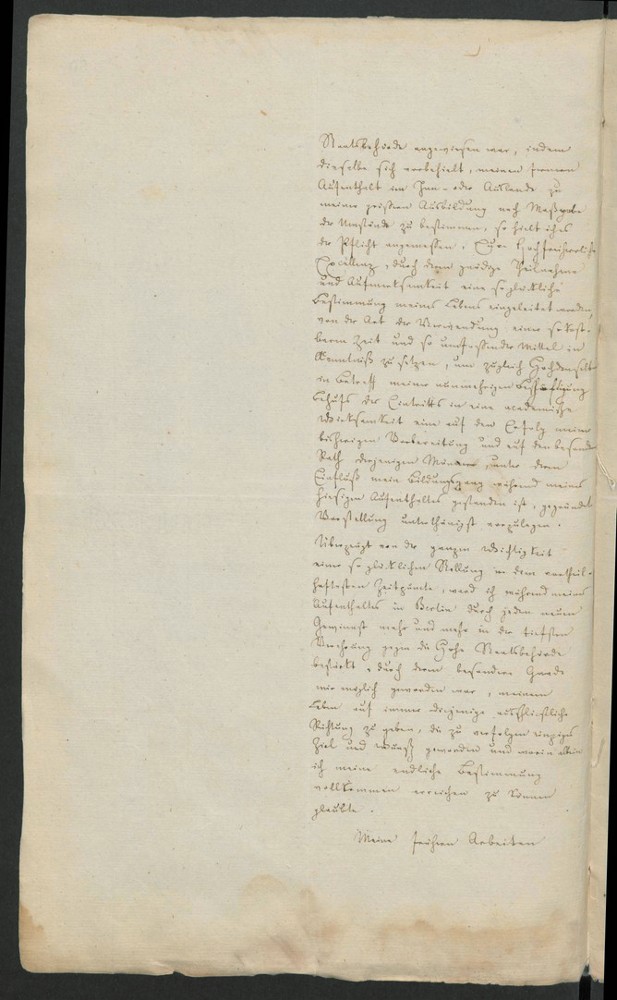 Staatsbehörde angewiesen war, indem
dieselbe sich vorbehielt, meinen ferneren
Aufenthalt im In- oder Auslande zu
meiner größern Ausbildung nach Maßgabe
der Umstände zu bestimmen, so hielt ich es
der Pflicht angemessen, Euer Hochfreiherrliche
Excellenz, durch deren gnädige Theilnahme
und Aufmerksamkeit eine so glückliche
Bestimmung meines Lebens eingeleitet worden,
von der Art der Verwendung einer so kost-
baren Zeit und so umfassender Mittel in
Kenntniß zu setzen, und zugleich Hochdenselben
in Betreff meiner nunmehrigen Beschäftigung
Behufs des Eintritts in eine academische
Wirksamkeit eine auf den Erfolg meiner
bisherigen Vorbereitung und auf den besondern
Rath derjenigen Männer, unter deren
Einfluß mein Bildungsgang während meines
hiesigen Aufenthaltes gestanden ist, gegründete
Vorstellung unterthänigst vorzulegen.
Überzeugt von der ganzen Wichtigkeit
einer so glücklichen Stellung in dem vortheil-
haftesten Zeitpuncte, ward ich während meines
Aufenthaltes in Berlin durch jeden neuen
Gewinnst mehr und mehr in der tiefsten
Verehrung gegen die Hohe Staatsbehörde
bestärkt, durch deren besondere Gnade
mir möglich geworden war, meinem
Leben auf immer diejenige ausschließliche
Richtung zu geben, die zu verfolgen einziges
Ziel und Wunsch geworden und worin allein
ich meine endliche Bestimmung
vollkommen erreichen zu können
glaubte.
Meine frühern Arbeiten